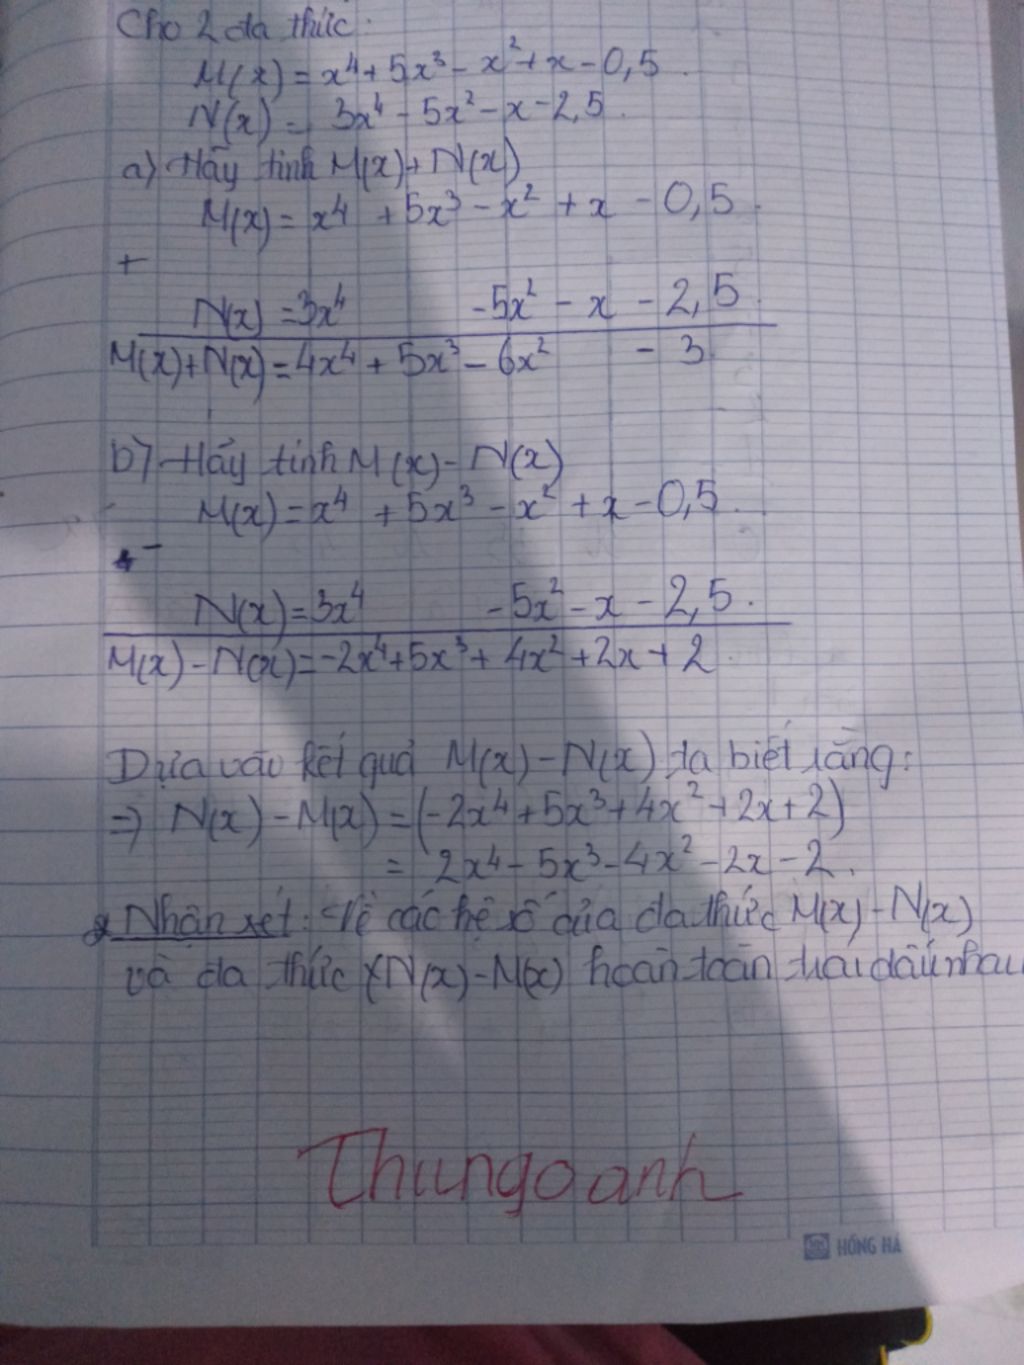 Cho 2 đa thức:
M(x) = x⁴ + 5x³ - x² + x - 0,5.
N(x) = 3x⁴ - 5x² - x - 2,5.
a) Hãy tính M(x) + N(x)
M(x) = x⁴ + 5x³ - x² + x - 0,5.
+
N(x) = 3x⁴ - 5x² - x - 2,5.
M(x) + N(x) = 4x⁴ + 5x³ - 6x² - 3
b) Hãy tính M(x) - N(x)
M(x) = x⁴ + 5x³ - x² + x - 0,5.
-
N(x) = 3x⁴ - 5x² - x - 2,5.
M(x) - N(x) = -2x⁴ + 5x³ + 4x² + 2x + 2.
Dựa vào kết quả M(x) - N(x) ta biết rằng:
=> N(x) - M(x) = (-2x⁴ + 5x³ + 4x² + 2x + 2)
= 2x⁴ - 5x³ - 4x² - 2x - 2.
Nhận xét: Về các hệ số của đa thức M(x) - N(x)
và đa thức N(x) - M(x) hoàn toàn trái dấu nhau
Thungoanh
HỒNG HÀ